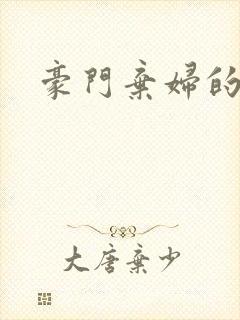 豪門棄婦的
大唐棄少